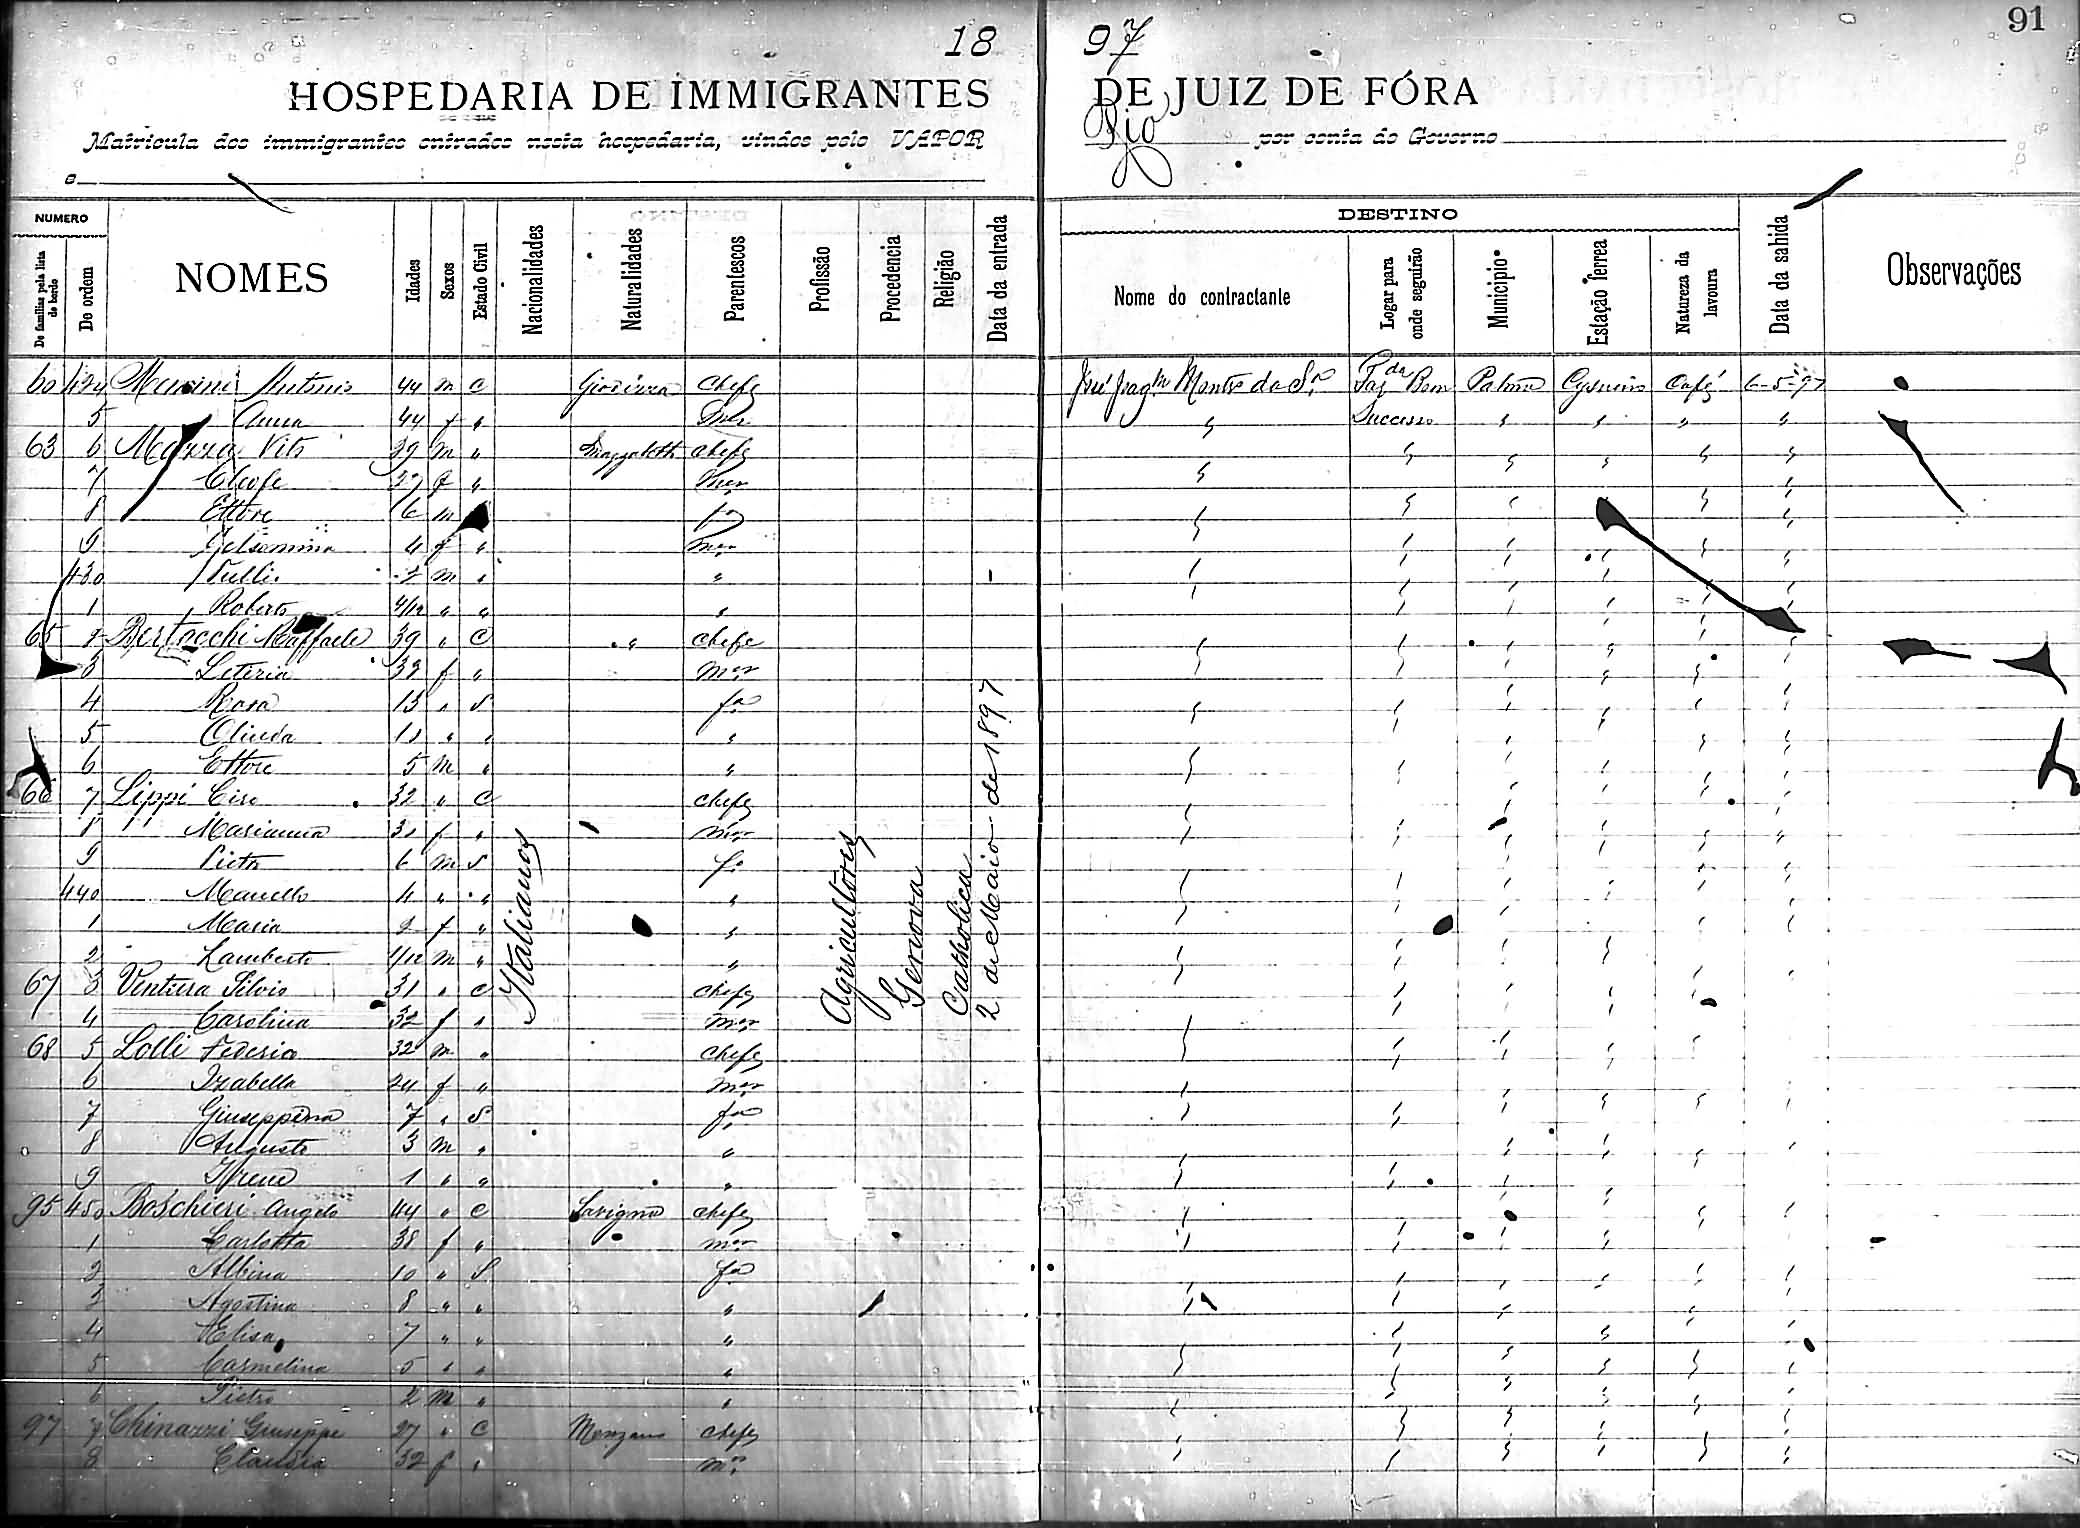 91
18 97
HOSPEDARIA DE IMMIGRANTES DE JUIZ DE FÓRA
Matricula dos immigrantes entrados nesta hospedaria, vindos pelo VAPOR Rio por conta do Governo
NUMERO DESTINO
De familias pela lista de bordo De ordem NOMES Idades Sexos Estado Civil Nacionalidades Naturalidades Parentescos Profissão Procedencia Religião Data da entrada Nome do contractante Logar para onde seguirão Municipio Estação ferrea Natureza da lavoura Data da sahida Observações
60 424 Antonio 44 m C chefe José Joaqm Montro da Sa Fazda Bom Palma Cysneiro Café 6-5-97
5 Anna 44 f " mer " Successo " " " "
63 6 Mazza Vito 39 m " chefe
7 Cleofe 37 f " mer
8 Ettore 6 m fo
9 Gelsomina 4 f "
430 Tullio 2 m " "
1 Roberto 4/12 " " "
65 2 Bertacchi Raffaele 39 " C " chefe
3 Leteria 38 f " mer
4 Rosa 13 " S fa
5 Olinda 11 " " "
6 Ettore 5 m " "
66 7 Lippi Ciro 32 " C chefe
8 " Marianna 31 f " mer
9 Pietro 6 m S fo
440 Manello 4 " " "
1 Maria 2 f " "
2 Lamberto 1/12 m " "
67 3 Ventura Silvio 31 " C chefe
4 Carolina 32 f " mer
68 5 Lolli Federico 32 m " chefe
6 Izabella 24 f " mer
7 Giuseppina 7 " S fa
8 Augusto 3 m " "
9 Irene 1 " " "
95 450 Boschieri Angelo 44 " C Savigno chefe
1 Carlotta 38 f " mer
2 Albina 10 " S fa
3 Agostina 8 " " "
4 Elisa 7 " " "
5 Carmelina 5 " " "
6 Pietro 2 m " "
97 7 Chinazzi Giuseppe 27 " C Monzano chefe
8 Claudia 32 f " mer
Italianos
Agricultores
Genova
Catholica
2 de Maio de 1897